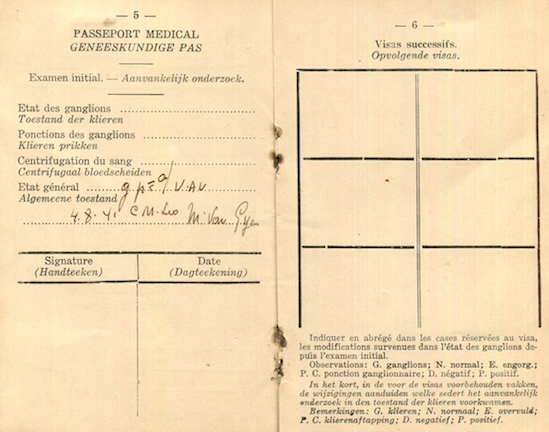 — 5 —
PASSEPORT MEDICAL
GENEESKUNDIGE PAS
Examen initial. — Aanvankelijk onderzoek.
Etat des ganglions
Toestand der klieren
Ponctions des ganglions
Klieren prikken
Centrifugation du sang
Centrifugaal bloedscheiden
Etat général
Algemene toestand
4.8.41
Signature
(Handteeken)
Date
(Dagteekening)
— 6 —
Visas successifs.
Opvolgende visas.
Indiquer en abrégé dans les cases réservées au visa,
les modifications survenues dans l'état des ganglions de-
puis l'examen initial.
Observations: G. ganglions; N. normal; E. engorg.;
P. C. ponction ganglionnaire; D. négatif; P. positif.
In het kort, in de voor de visas voorbehouden vakken,
de wijzigingen aanduiden welke sedert het aanvankelijk
onderzoek in den toestand der klieren voorkwamen.
Bemerkingen: G. klieren; N. normaal; E. overvuld;
P. C. klierenaftapping; D. negatief; P. positief.